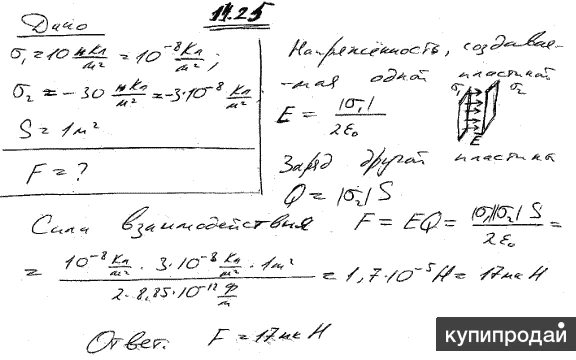 14.25
Дано
σ₁ = 10 нКл/м² = 10⁻⁸ Кл/м²;
σ₂ = -30 нКл/м² = -3·10⁻⁸ Кл/м²
S = 1 м²
F = ?
Напряжённость, создавае-
-мая одной пластиной
E = |σ₁|/2ε₀
σ₁ σ₂
E
Заряд другой пластины
Q = |σ₂| S
Сила взаимодействия F = EQ = |σ₁||σ₂| S/2ε₀ =
= 10⁻⁸ Кл/м² · 3·10⁻⁸ Кл/м² · 1 м²/2·8,85·10⁻¹² Ф/м = 1,7·10⁻⁵ Н = 17 мкН
Ответ: F = 17 мкН
купипродай